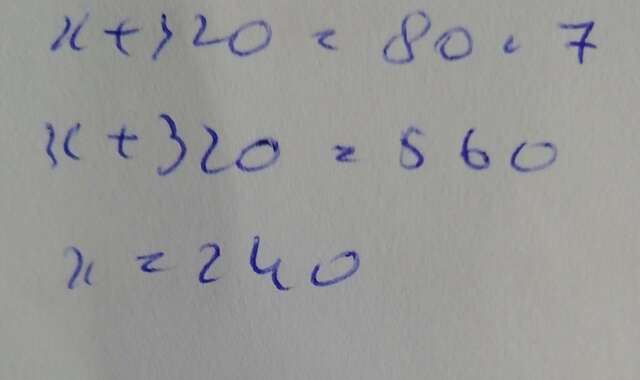 x + 320 = 80 · 7
x + 320 = 560
x = 240